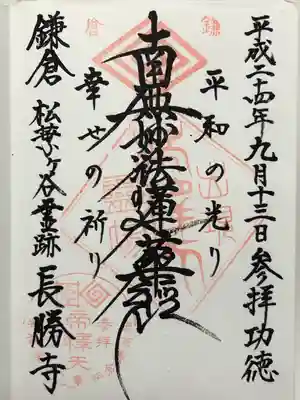 平成二十四年九月十三日参拝功徳
平和の光り
南無妙法蓮華経
幸せの祈り
鎌倉松葉ヶ谷霊跡長勝寺
鎌
倉
帝釋天